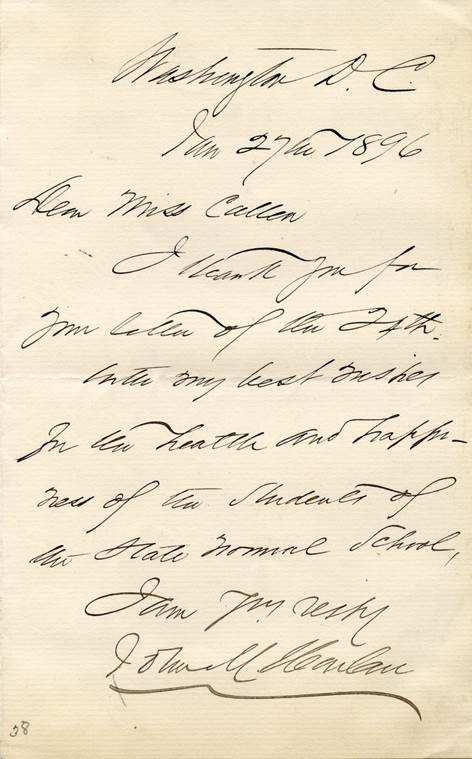 Washington D. C.
Jan 27th 1896
Dear Miss Cullen
I thank you for
your letter of the 24th.
With my best wishes
for the health and happi-
ness of the students of
the State Normal School,
I am Yrs resty
John M Harlan
38